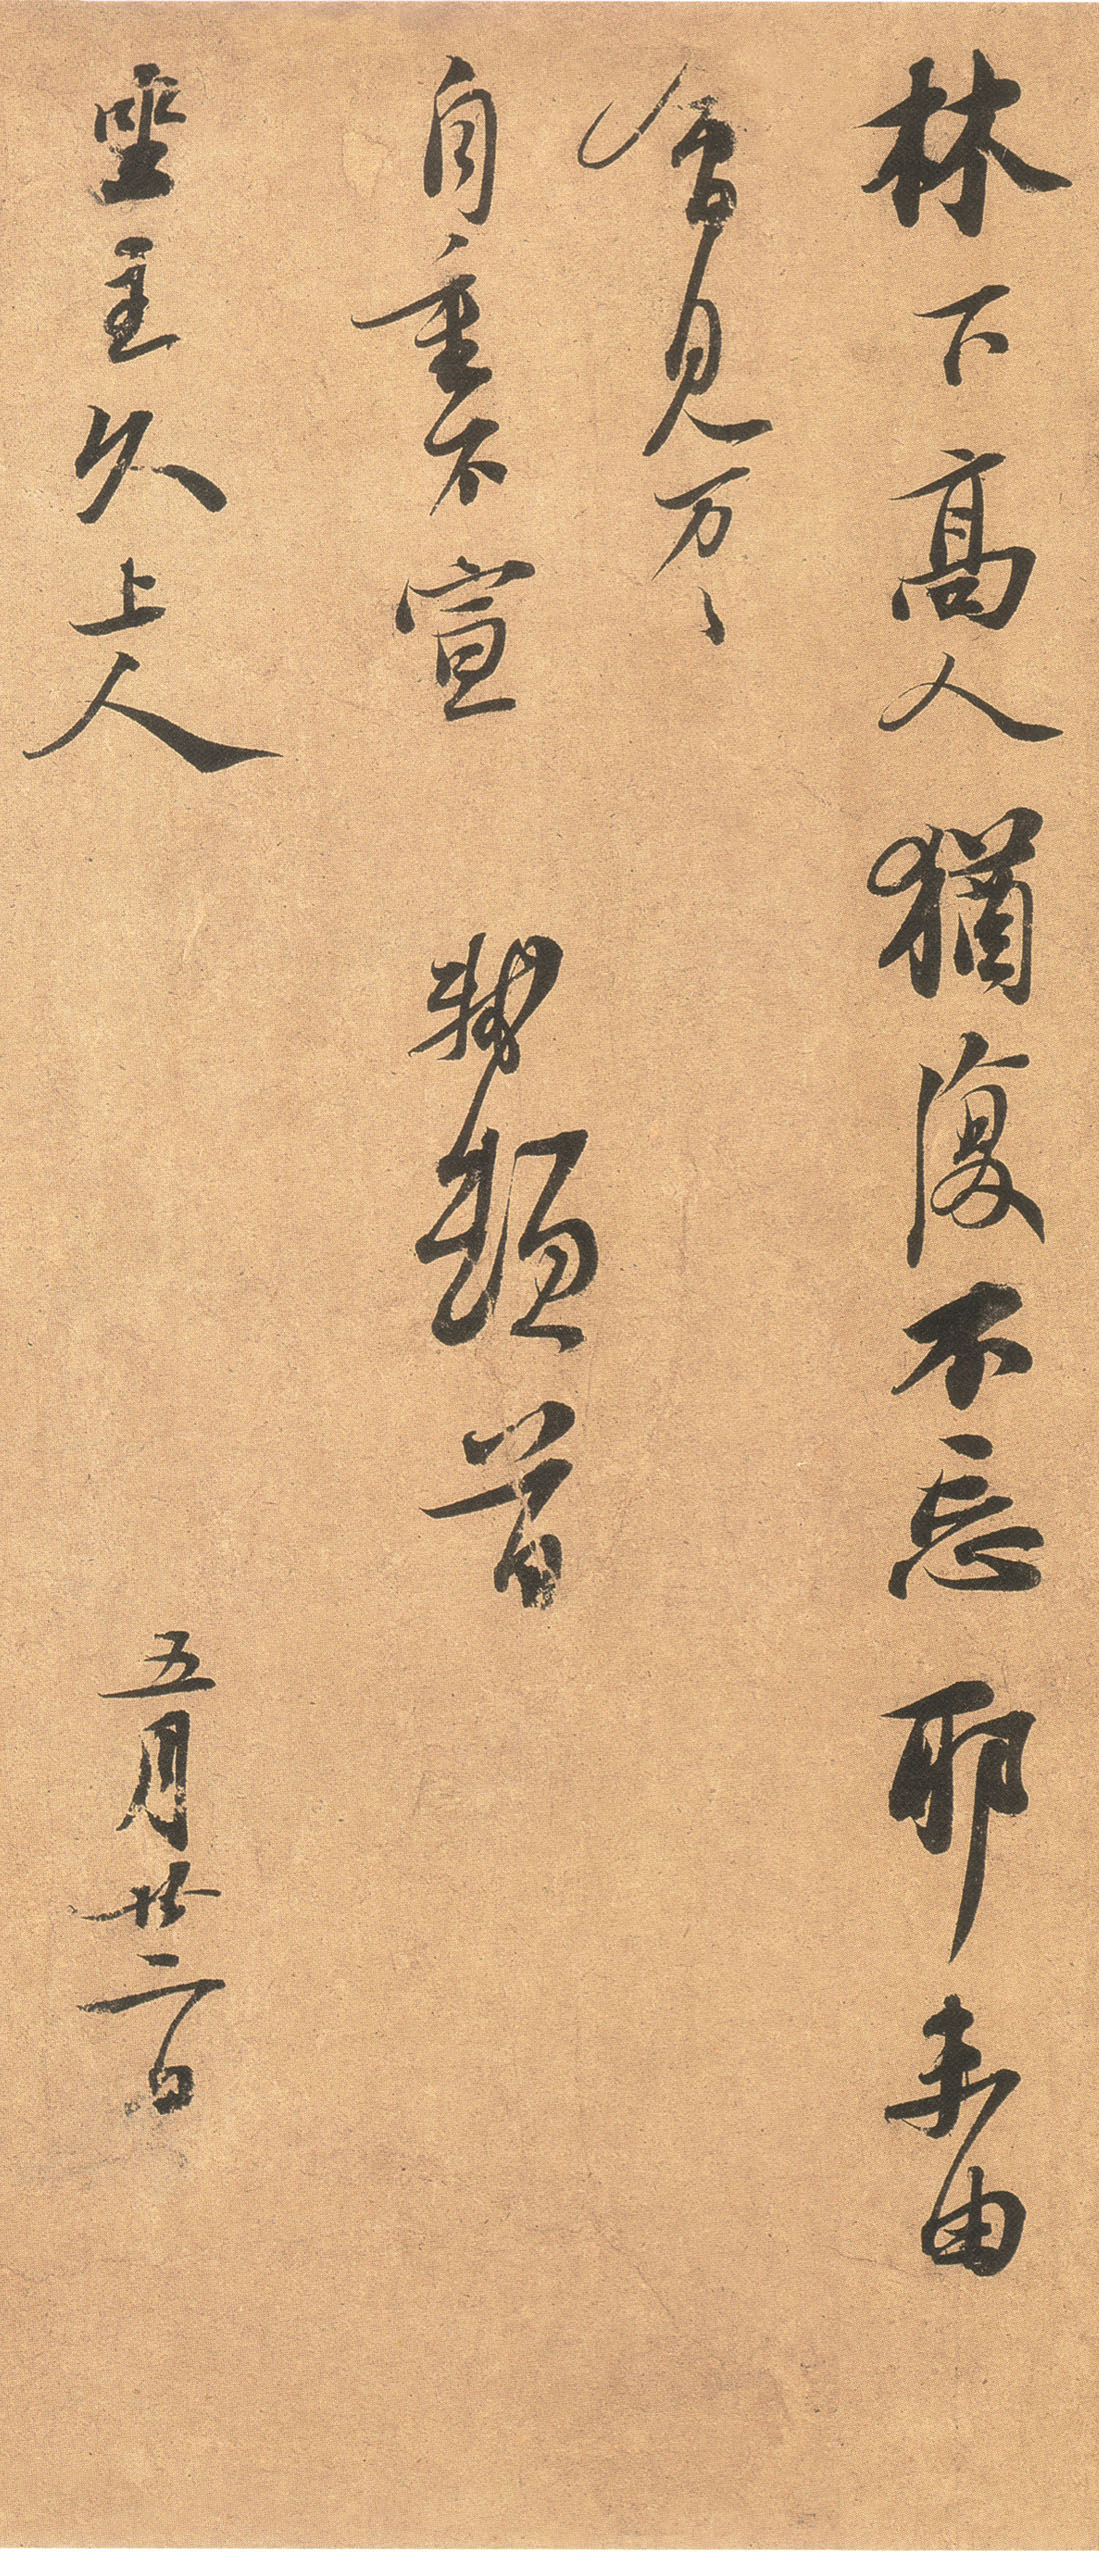 林下高人猶復不忘耶未由
會見万〻
自重不宣 軾頓首
坐主久上人
五月廿二日